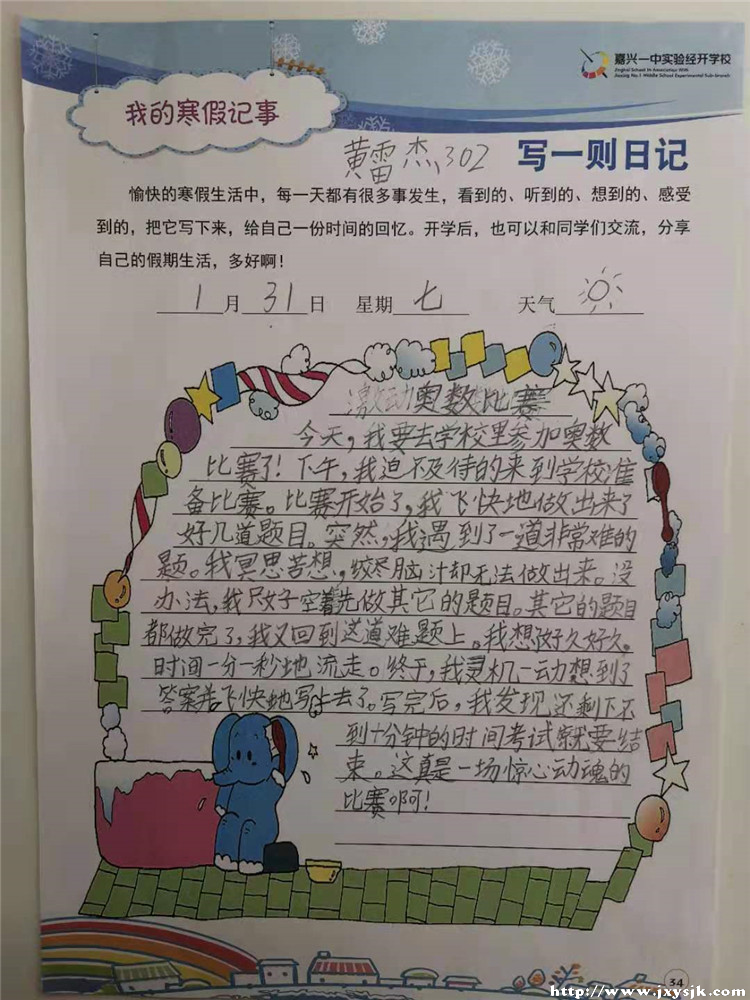 嘉兴一中实验经开学校
Jingkai School In Association With
Jiaxing No.1 Middle School Experimental Sub-branch
我的寒假记事
黄雷杰,302
写一则日记
愉快的寒假生活中，每一天都有很多事发生，看到的、听到的、想到的、感受
到的，把它写下来，给自己一份时间的回忆。开学后，也可以和同学们交流，分享
自己的假期生活，多好啊！
1月31日 星期七 天气
激动奥数比赛
今天，我要去学校里参加奥数
比赛了！下午，我迫不及待的来到学校准
备比赛。比赛开始了，我飞快地做出来了
好几道题目。突然，我遇到了一道非常难的
题。我冥思苦想，绞尽脑汁却无法做出来。没
办法，我只好空着先做其它的题目。其它的题目
都做完了，我又回到这道难题上。我想了好久好久，
时间一分一秒地流走。终于，我灵机一动想到了
答案并飞快地写上去了。写完后，我发现还剩下不
到十分钟的时间考试就要结
束。这真是一场惊心动魂的
比赛啊！
34
http://www.jxysjk.com